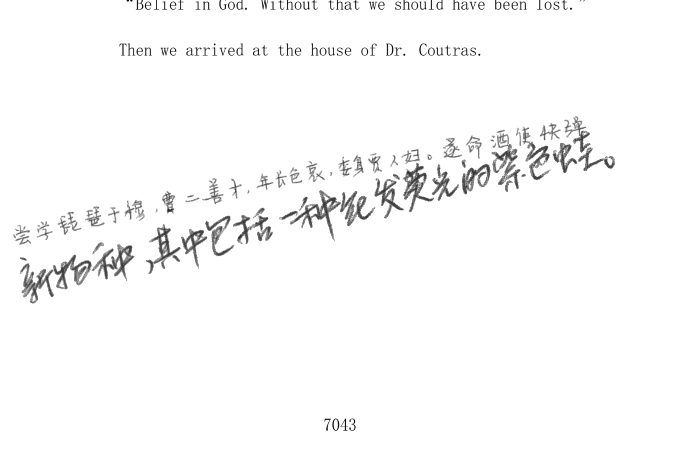 “Belief in God. Without that we should have been lost.”
Then we arrived at the house of Dr. Coutras.
尝学琵琶于穆,曹二善才,年长色衰,委身贾人妇。遂命酒使快弹
新物种,其中包括一种能发荧光的紫色蛙。
7043